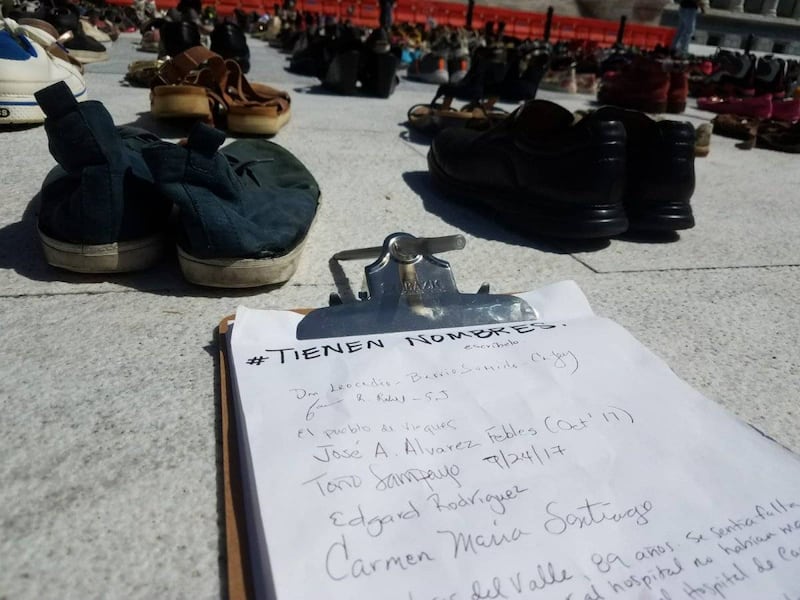 # TIENEN NOMBRES.
escríbelo
Don Leocadio - Barrio Sumido - Cayey
S.J
El pueblo de Vieques
José A. Alvarez Febles (Oct' 17)
Toño Sampayo 9/24/17
Edgard Rodriguez
Carmen María Santiago
del Valle, 89 años. se sentía falta
al hospital no habían
Hospital de